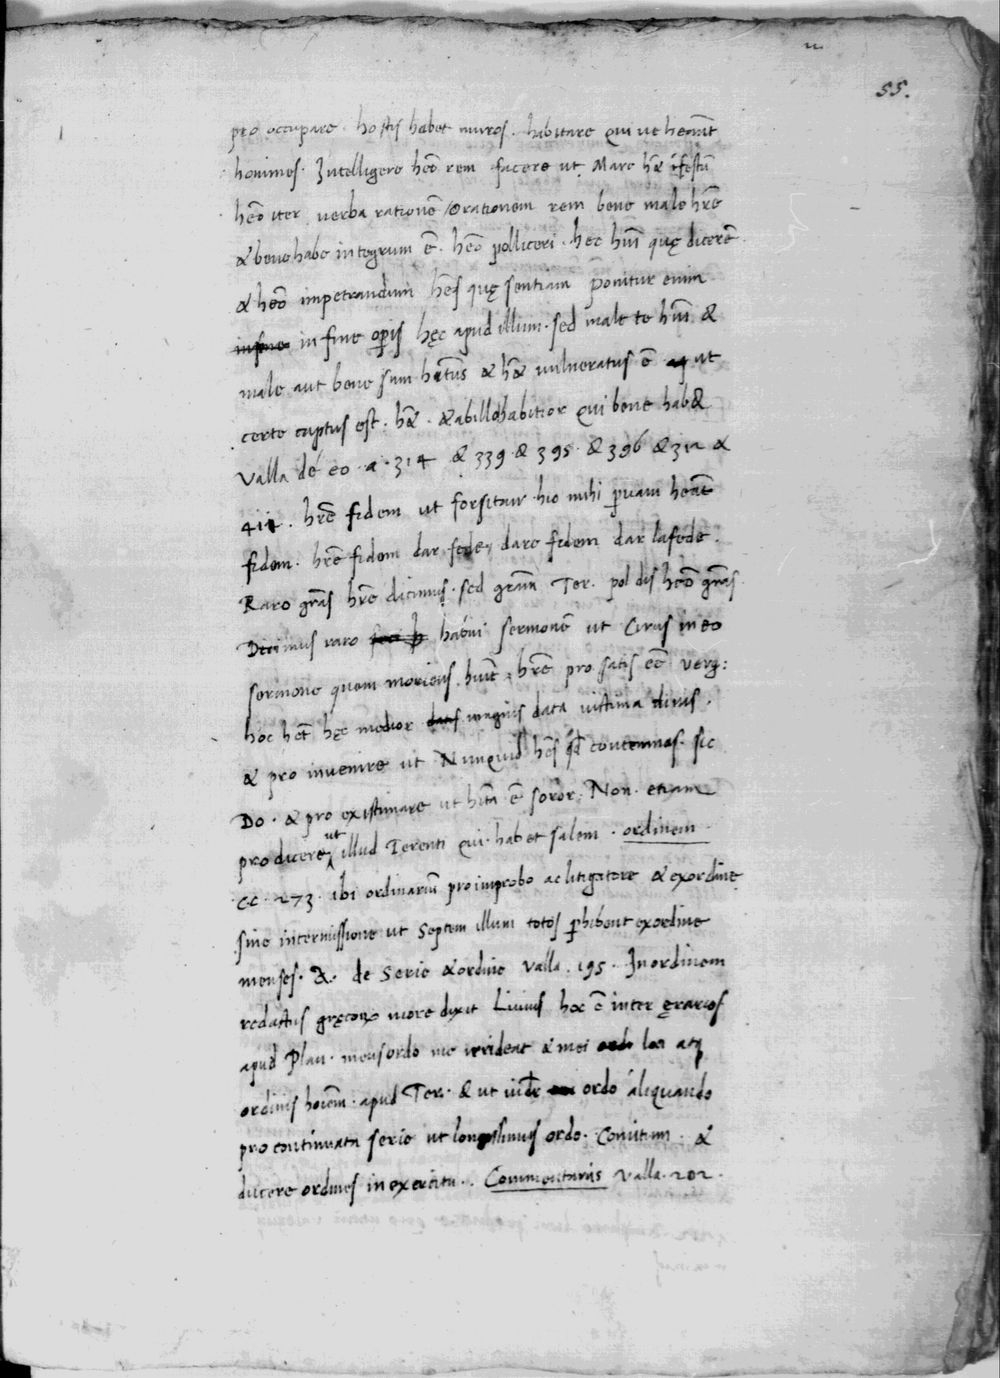 55.
pro occupare. hostis habet muros. habitare qui ve heant
homines. Intelligere heo rem facere ut Mare hẽ ifestũ
heo iter verba rationẽ /orationem rem bene male hr̃e
& bene habe integrum ẽ. heo polliceri. hec hui quę dicerẽ
& heo impetrandum hẽs quę sentiam Ponitur enim
in fine opis hęc apud illum. sed male te hui &
male aut bene sum hitus & hẽ vulneratus ẽ ut
certe captus est. hẽ. & ab illo habitior qui bene hab&
Valla de eo a 314 & 339 & 395. & 396 & 312 &
414. hr̃e fidem ut forsitan hio mihi pvam heãt
fidem. hr̃e fidem dar fede, dare fidem dar la fede.
Raro gr̃as hr̃e dicimus. sed gr̃am Ter. pol dis heo gr̃as
Dicimus raro habui sermonẽ ut Cirus in eo
sermone quem moriens huit, hr̃e pro satis eẽ verg:
hoc hẽt hęc melior magnis data victima divis.
& pro invenire ut Nunquid hẽs qd contemnas. sic
Do. & pro existimare ut hita ẽ soror. Non etiam
pro dicere ut illud Terenti qui habet salem. ordinem
cc. 273. ibi ordinariũ pro improbo ac litigatore & exordine
sine intermissione ut Septem illum totos phibent exordine
menses. &. de Serie & ordine Valla. 195. In ordinem
redactus gręcoꝝ more dixit Livius hoc ẽ inter ęrarios
apud Plau. meus ordo me irrideat & mei loci atq
ordinis hoiẽm. apud Ter. & ut iudr ordo aliquando
pro continuata serie ut longissimus ordo. Comitum. &
ducere ordines in exercitu.. Commentariis Valla. 202.